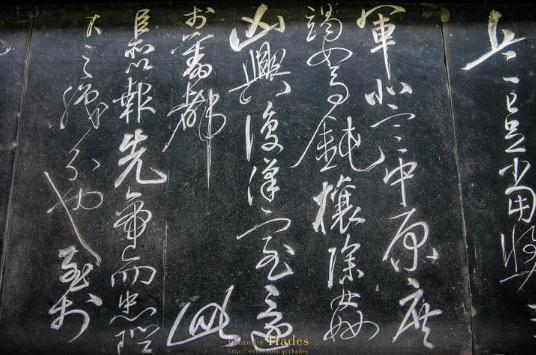 兵已足當獎
軍北定中原庶
竭駑鈍攘除姦
凶興復漢室還
於舊都 此
臣所以報先帝而忠陛
下之職分也至於
Photo by Hades